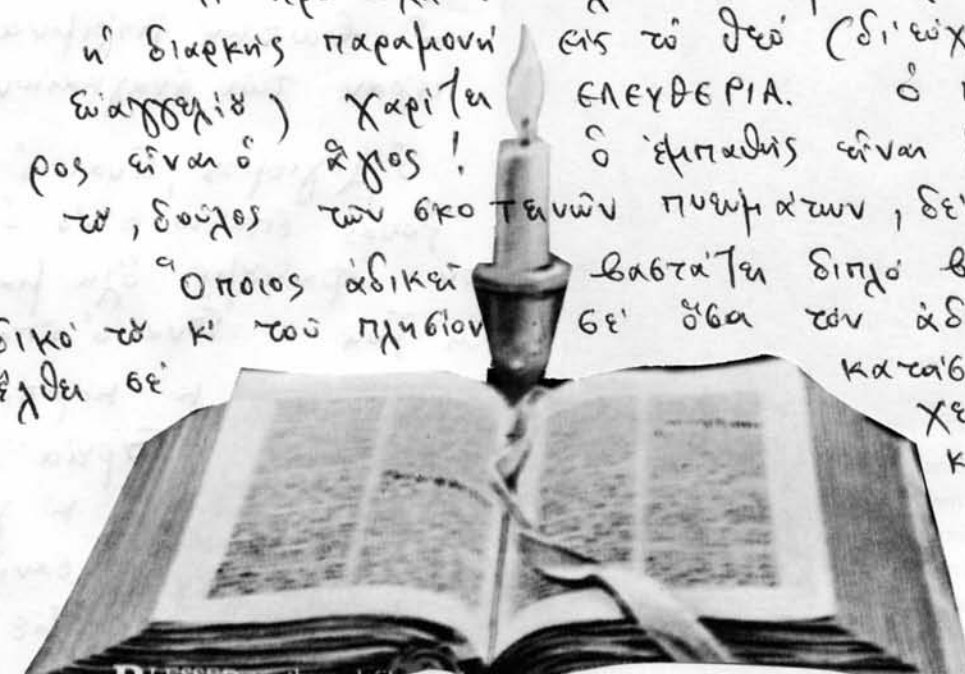 ἡ διαρκὴς παραμονὴ εἰς τὸ θεό (δι' εὐχ
εὐαγγελίȣ) χαρίζει ΕΛΕΥΘΕΡΙΑ. ὁ
ρος εἶναι ὁ ἅγιος! ὁ ἐμπαθὴς εἶναι
τȣ, δοῦλος τῶν σκοτεινῶν πνευμάτων, δε
Ὅποιος ἀδικεῖ βαστάζει διπλό β
δικό τȣ κ' τοῦ πλησίον σὲ ὅσα τὸν ἀδ
ἔλθει σὲ κατάσ
χε
κ
BLESSED